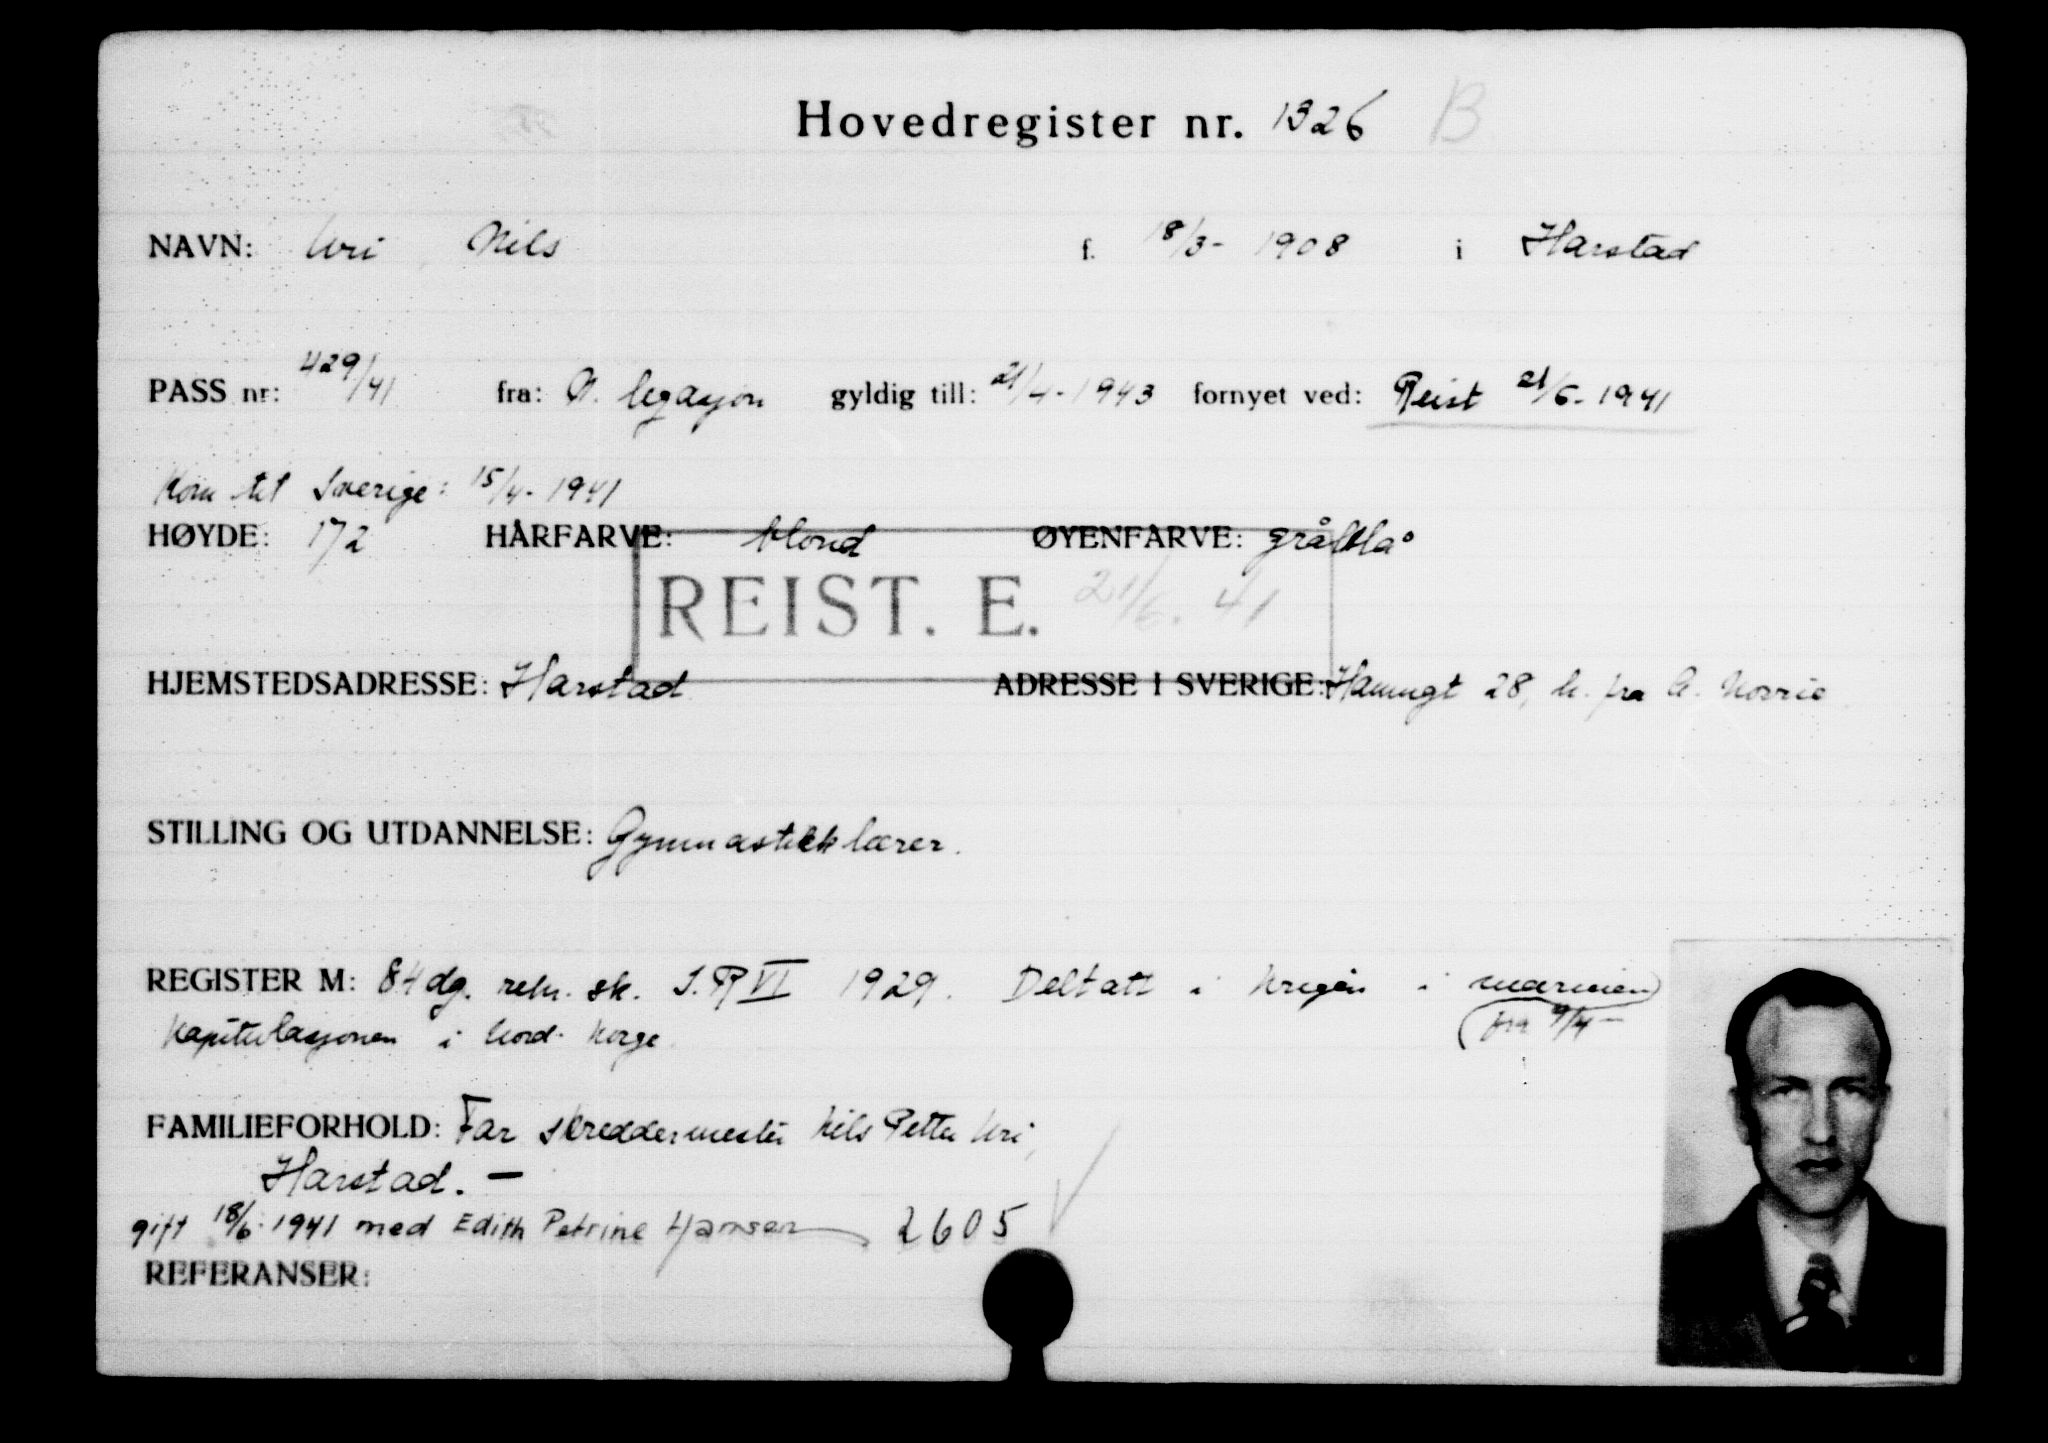 Hovedregister nr. 1326 B
NAVN: Uri, Nils f. 18/3- 1908 i Harstad
PASS nr: 429/41 fra: N. legasjon gyldig till: 21/4-1943 fornyet ved: Reist 21/6-1941
Kom til Sverige: 15/4-1941
HØYDE: 172 HÅRFARVE: blond ØYENFARVE: gråblå
REIST. E. 21/6.41
HJEMSTEDSADRESSE: Harstad ADRESSE I SVERIGE: 28, h. fra
STILLING OG UTDANNELSE: Gymnastikklærer.
REGISTER M: 84 dg. rekr. sk. I.R VI 1929. Deltatt i krigen i marinen
(fra 9/4-
Kapitulasjonen i Nord-Norge.
FAMILIEFORHOLD: Far skreddermester Nils Petter Uri,
Harstad. -
gift 18/6-1941 med Edith Petrine Hansen 2605
REFERANSER: